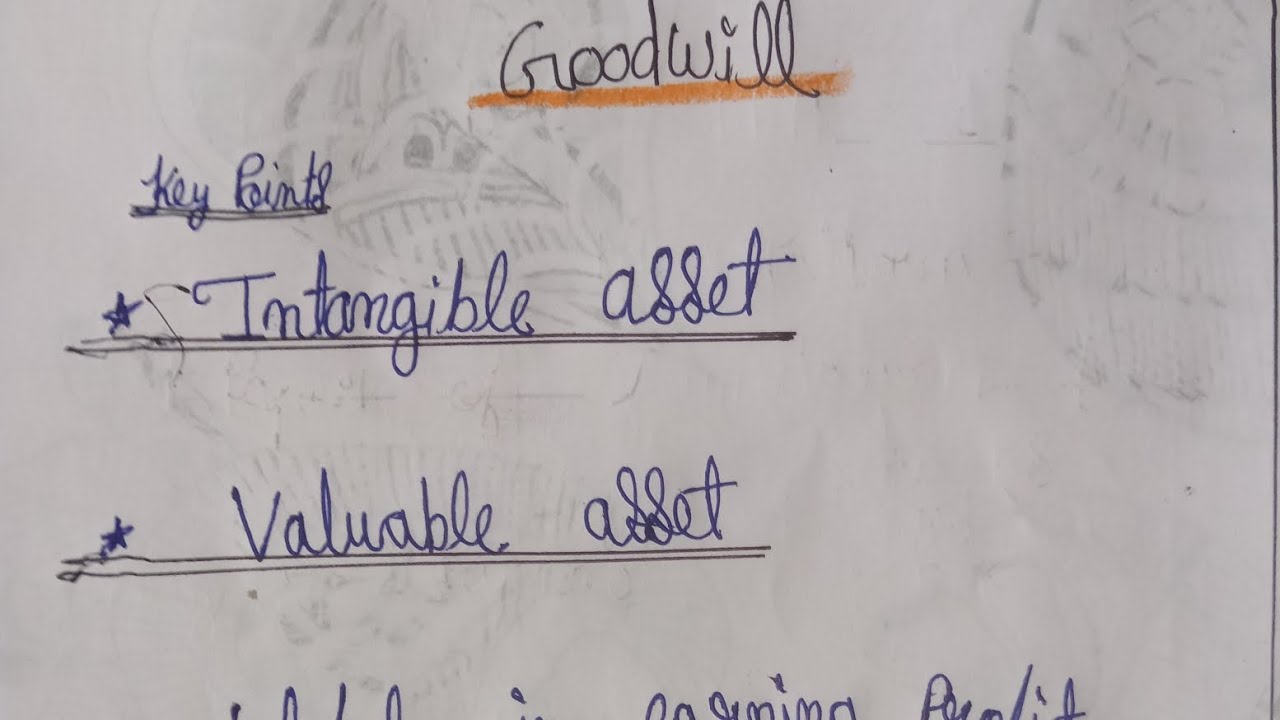 Goodwill
Key Points
Intangible asset
Valuable asset
in earning Profit